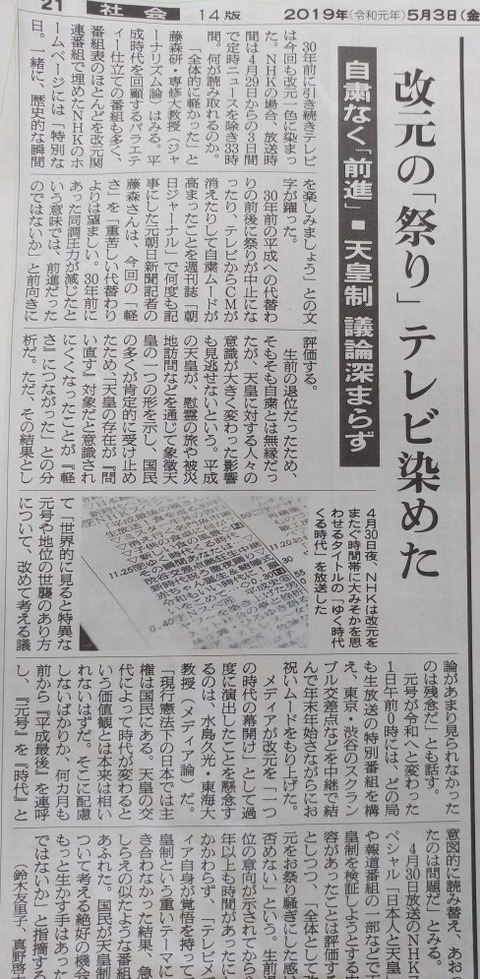 21 社会 14版 2019年(令和元年)5月3日(金
改元の「祭り」テレビ染めた
自粛なく「前進」■天皇制 議論深まらず
30年前に引き続きテレビ
は今回も改元一色に染まっ
た。NHKの場合、放送時
間は4月29日からの3日間
で定時ニュースを除き33時
間。何が読み取れるのか。
「全体的に軽かった」と
藤森研・専修大教授(ジャ
ーナリズム論)はみる。平
成時代を回顧するバラエテ
ィー仕立ての番組も多く、
番組表のほとんどを改元関
連番組で埋めたNHKのホ
ームページには「特別な
日。一緒に、歴史的な瞬間
を楽しみましょう」との文
字が躍った。
30年前の平成への代替わ
りの前後に祭りが中止にな
ったり、テレビからCMが
消えたりして自粛ムードが
高まったことを週刊誌「朝
日ジャーナル」で何度も記
事にした元朝日新聞記者の
藤森さんは、今回の「軽
さ」を「重苦しい代替わり
よりは望ましい。30年前に
あった同調圧力が減じたと
いう意味では、前進だった
のではないか」と前向きに
評価する。
生前の退位だったため、
そもそも自粛とは無縁だっ
たが、天皇に対する人々の
意識が大きく変わった影響
も見逃せないという。平成
の天皇が、慰霊の旅や被災
地訪問などを通じて象徴天
皇の一つの形を示し、国民
の多くが肯定的に受け止め
たため、「天皇の存在が『問
い直す』対象だと意識され
にくくなったことが『軽
さ』につながった」との分
析だ。ただ、その結果とし
4月30日夜、NHKは改元を
またぐ時間帯に大みそかを思
わせるタイトルの「ゆく時代
くる時代」を放送した
て「世界的に見ると特異な
元号や地位の世襲のあり方
について、改めて考える議
論があまり見られなかった
のは残念だ」とも話す。
元号が令和へと変わった
1日午前0時には、どの局
も生放送の特別番組を構
え、東京・渋谷のスクラン
ブル交差点などを中継で結
んで年末年始さながらにお
祝いムードをもり上げた。
メディアが改元を「一つ
の時代の幕開け」として過
度に演出したことを懸念す
るのは、水島久光・東海大
教授(メディア論)だ。
「現行憲法下の日本では主
権は国民にある。天皇の交
代によって時代が変わると
いう価値観とは本来は相い
れないはずだ。そこに配慮
しないばかりか、何カ月も
前から『平成最後』を連呼
し、『元号』を『時代』と
意図的に読み替え、あお
たのは問題だ」とみる。
4月30日放送のNHK
ペシャル「日本人と天皇
や報道番組の一部などで
皇制を検証しようとする
容があったことは評価す
としつつ、「全体として
元をお祭り騒ぎにした感
否めない」という。生前
位の意向が示されてから
年以上も時間があったに
かかわらず、「テレビメ
ィア自身が覚悟を持って
皇制という重いテーマに
き合わなかった結果、急
しらえの似たような番組
あふれた。国民が天皇制
ついて考える絶好の機会
もっと生かす手はあった
ではないか」と指摘する
(鈴木友里子、真野啓